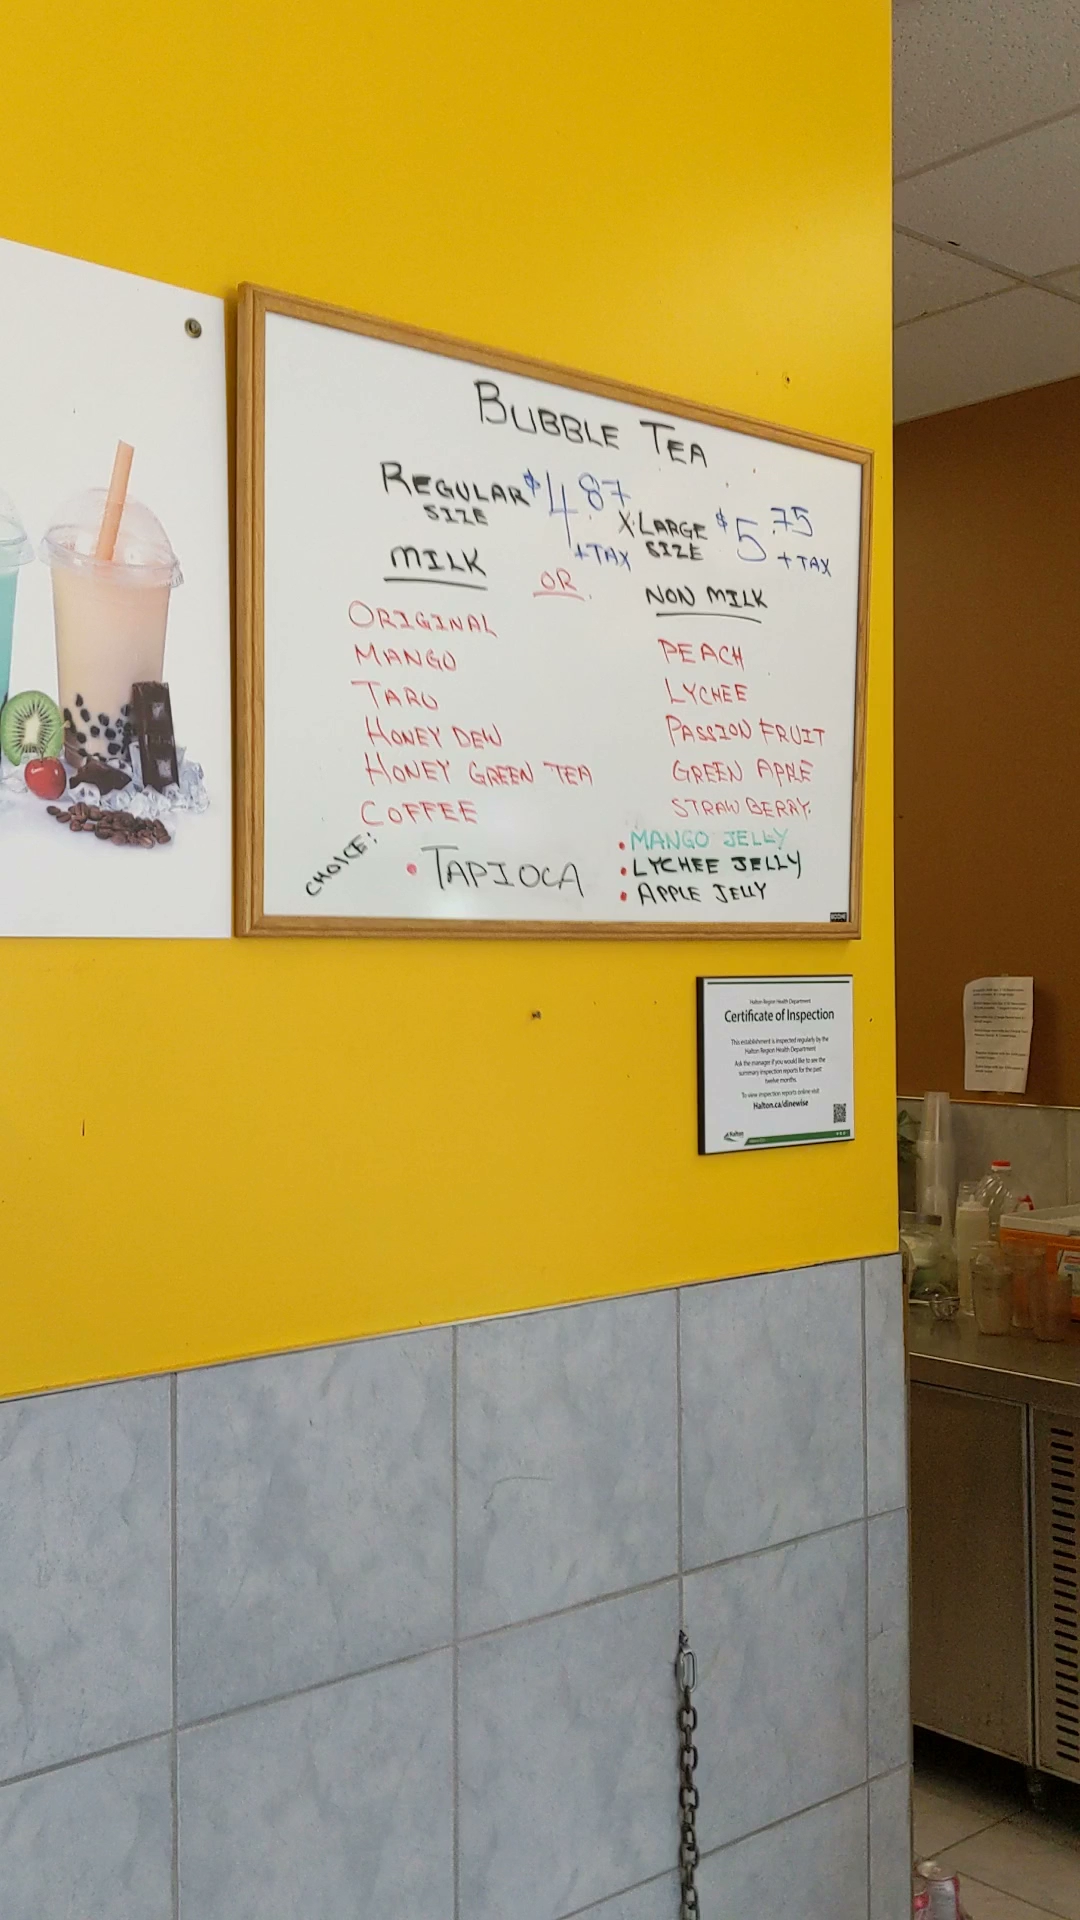 BUBBLE TEA
REGULAR SIZE $4.87 +TAX
X-LARGE SIZE $5.75 +TAX
MILK
OR
NON MILK
ORIGINAL
MANGO
TARO
HONEY DEW
HONEY GREEN TEA
COFFEE
PEACH
LYCHEE
PASSION FRUIT
GREEN APPLE
STRAWBERRY
CHOICE:
• TAPIOCA
• MANGO JELLY
• LYCHEE JELLY
• APPLE JELLY
Halton Region Health Department
Certificate of Inspection
This establishment is inspected regularly by the
Halton Region Health Department
Ask the manager if you would like to see the
summary inspection reports for the past
twelve months.
To view inspection reports online visit
Halton.ca/dinewise
Halton